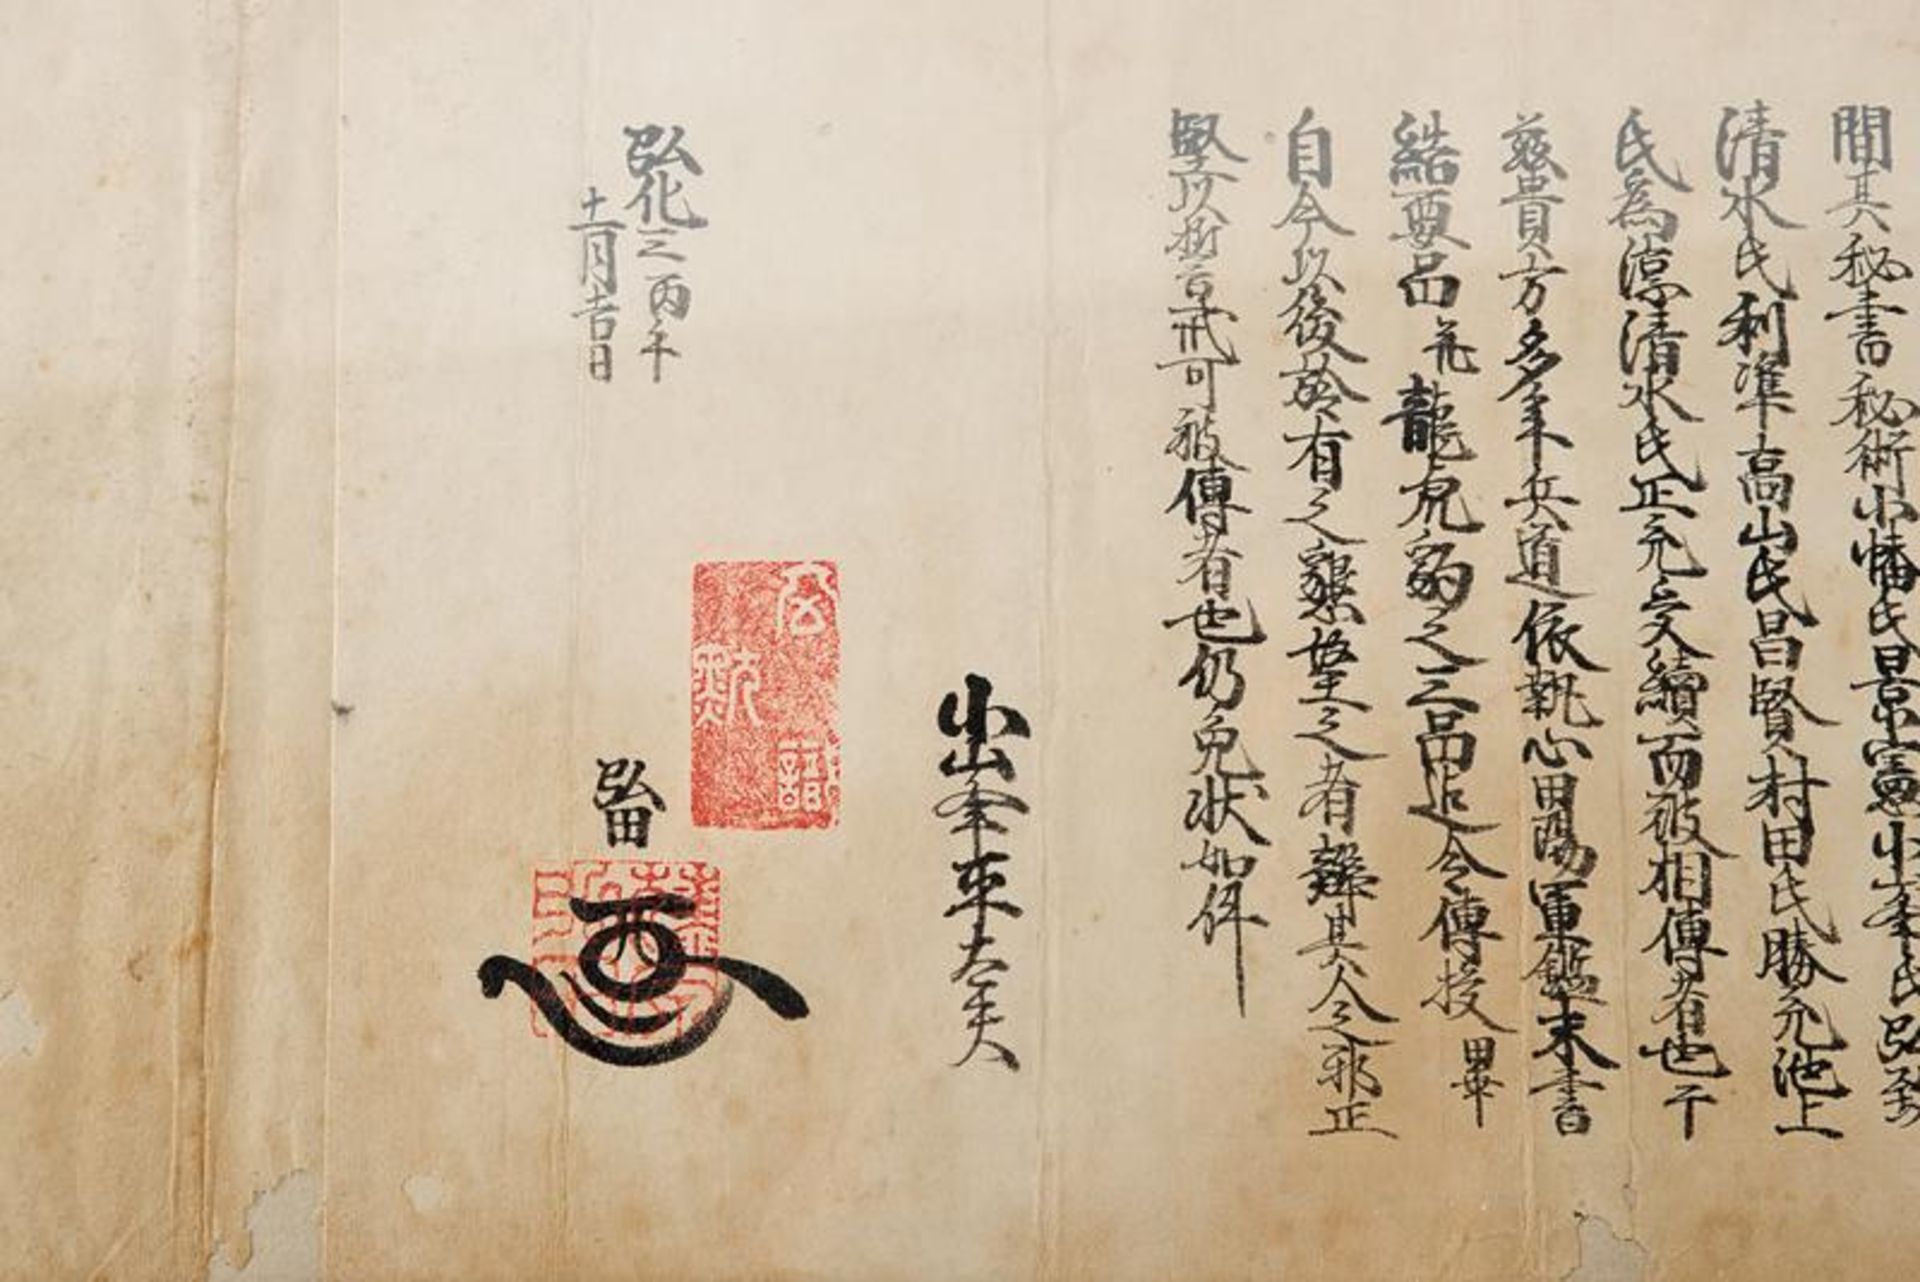 間其秘書秘術小幡氏景憲小峯氏弘致
清水氏利準高山氏昌賢村田氏勝允池上
氏為淙清水氏正允受續而被相傳者也干
茲貴方多年兵道依執心甲陽軍鑑末書
結要品并龍虎豹之三品迠令傳授畢
自今以後於有之懇望之者有辨其人之邪正
堅以誓戒可被傳者也仍免状如件
小峯平太夫
弘化三丙午
十一月吉日
弘田